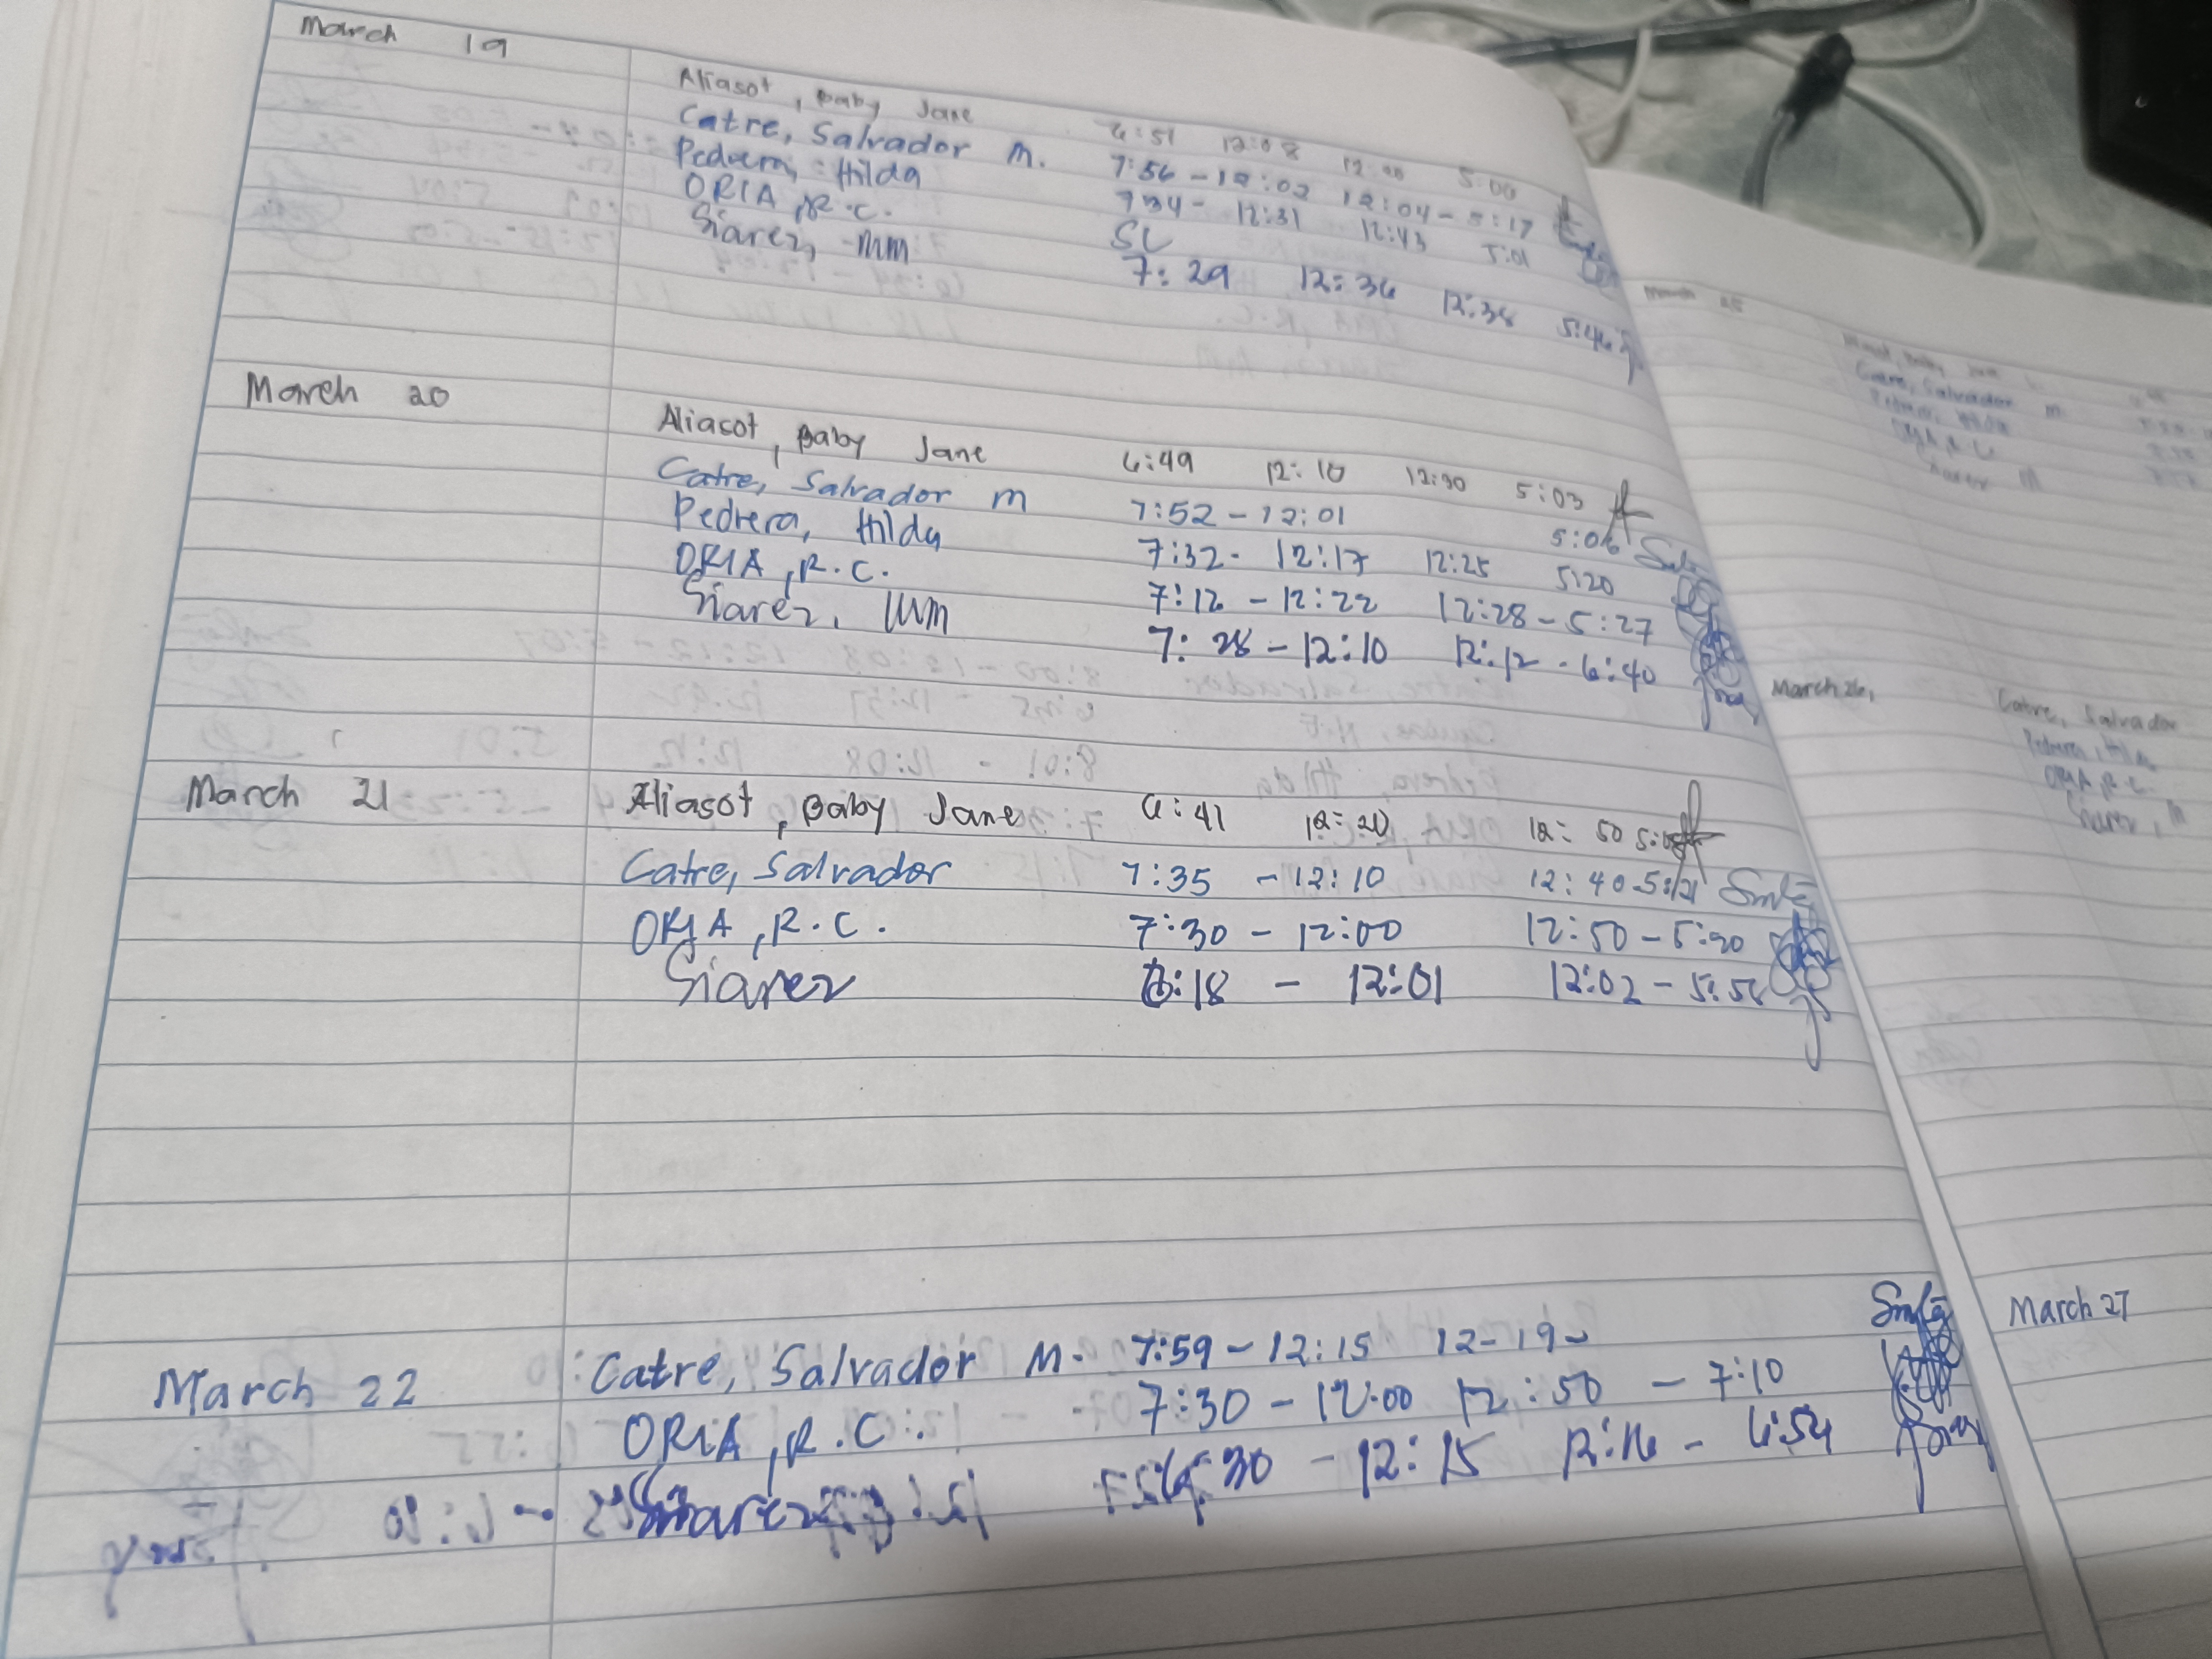 March 19
Aliasot, Baby Jane 6:51 12:08 5:00
Catre, Salvador M. 7:56 - 12:02 12:04 - 5:17
Pedrera, Hilda 7:34 - 12:31 12:43 5:01
ORIA, R.C. SL
Siarez, MM 7:29 12:36 12:38 5:46
March 20
Aliasot, Baby Jane 6:49 12:10 12:30 5:03
Catre, Salvador M 7:52 - 12:01 5:06
Pedrera, Hilda 7:32 - 12:17 12:25 5:20
ORIA, R.C. 7:12 - 12:22 12:28 - 5:27
Siarez, MM 7:28 - 12:10 12:12 - 6:40
March 21
Aliasot, Baby Jane 6:41 12:20 12:50
Catre, Salvador 7:35 - 12:10 12:40 - 5:21
ORIA, R.C. 7:30 - 12:00 12:50 - 5:20
Siarez :18 - 12:01 12:02 - 5:56
March 22
Catre, Salvador M. 7:59 - 12:15 12-19-
ORIA, R.C. 7:30 - 12:00 12:50 - 7:10
Siarez :30 - 12:15 12:16 - 6:54
March 25
Catre, Salvador M
March 26,
Catre, Salvador
Pedrera, Hilda
ORIA, R.C.
Siarez, M
March 27